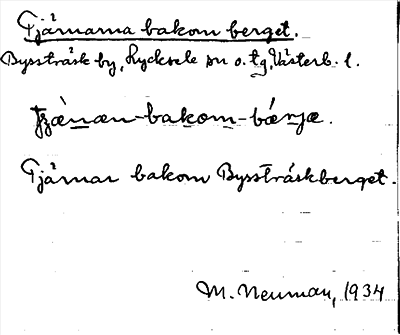 Tjärnarna bakom berget.
Byssträsk by, Lycksele sn o. tg, Västerb. l.
-bakom-bárjæ.
Tjärnar bakom Bysstråskberget.
M. Neuman, 1934